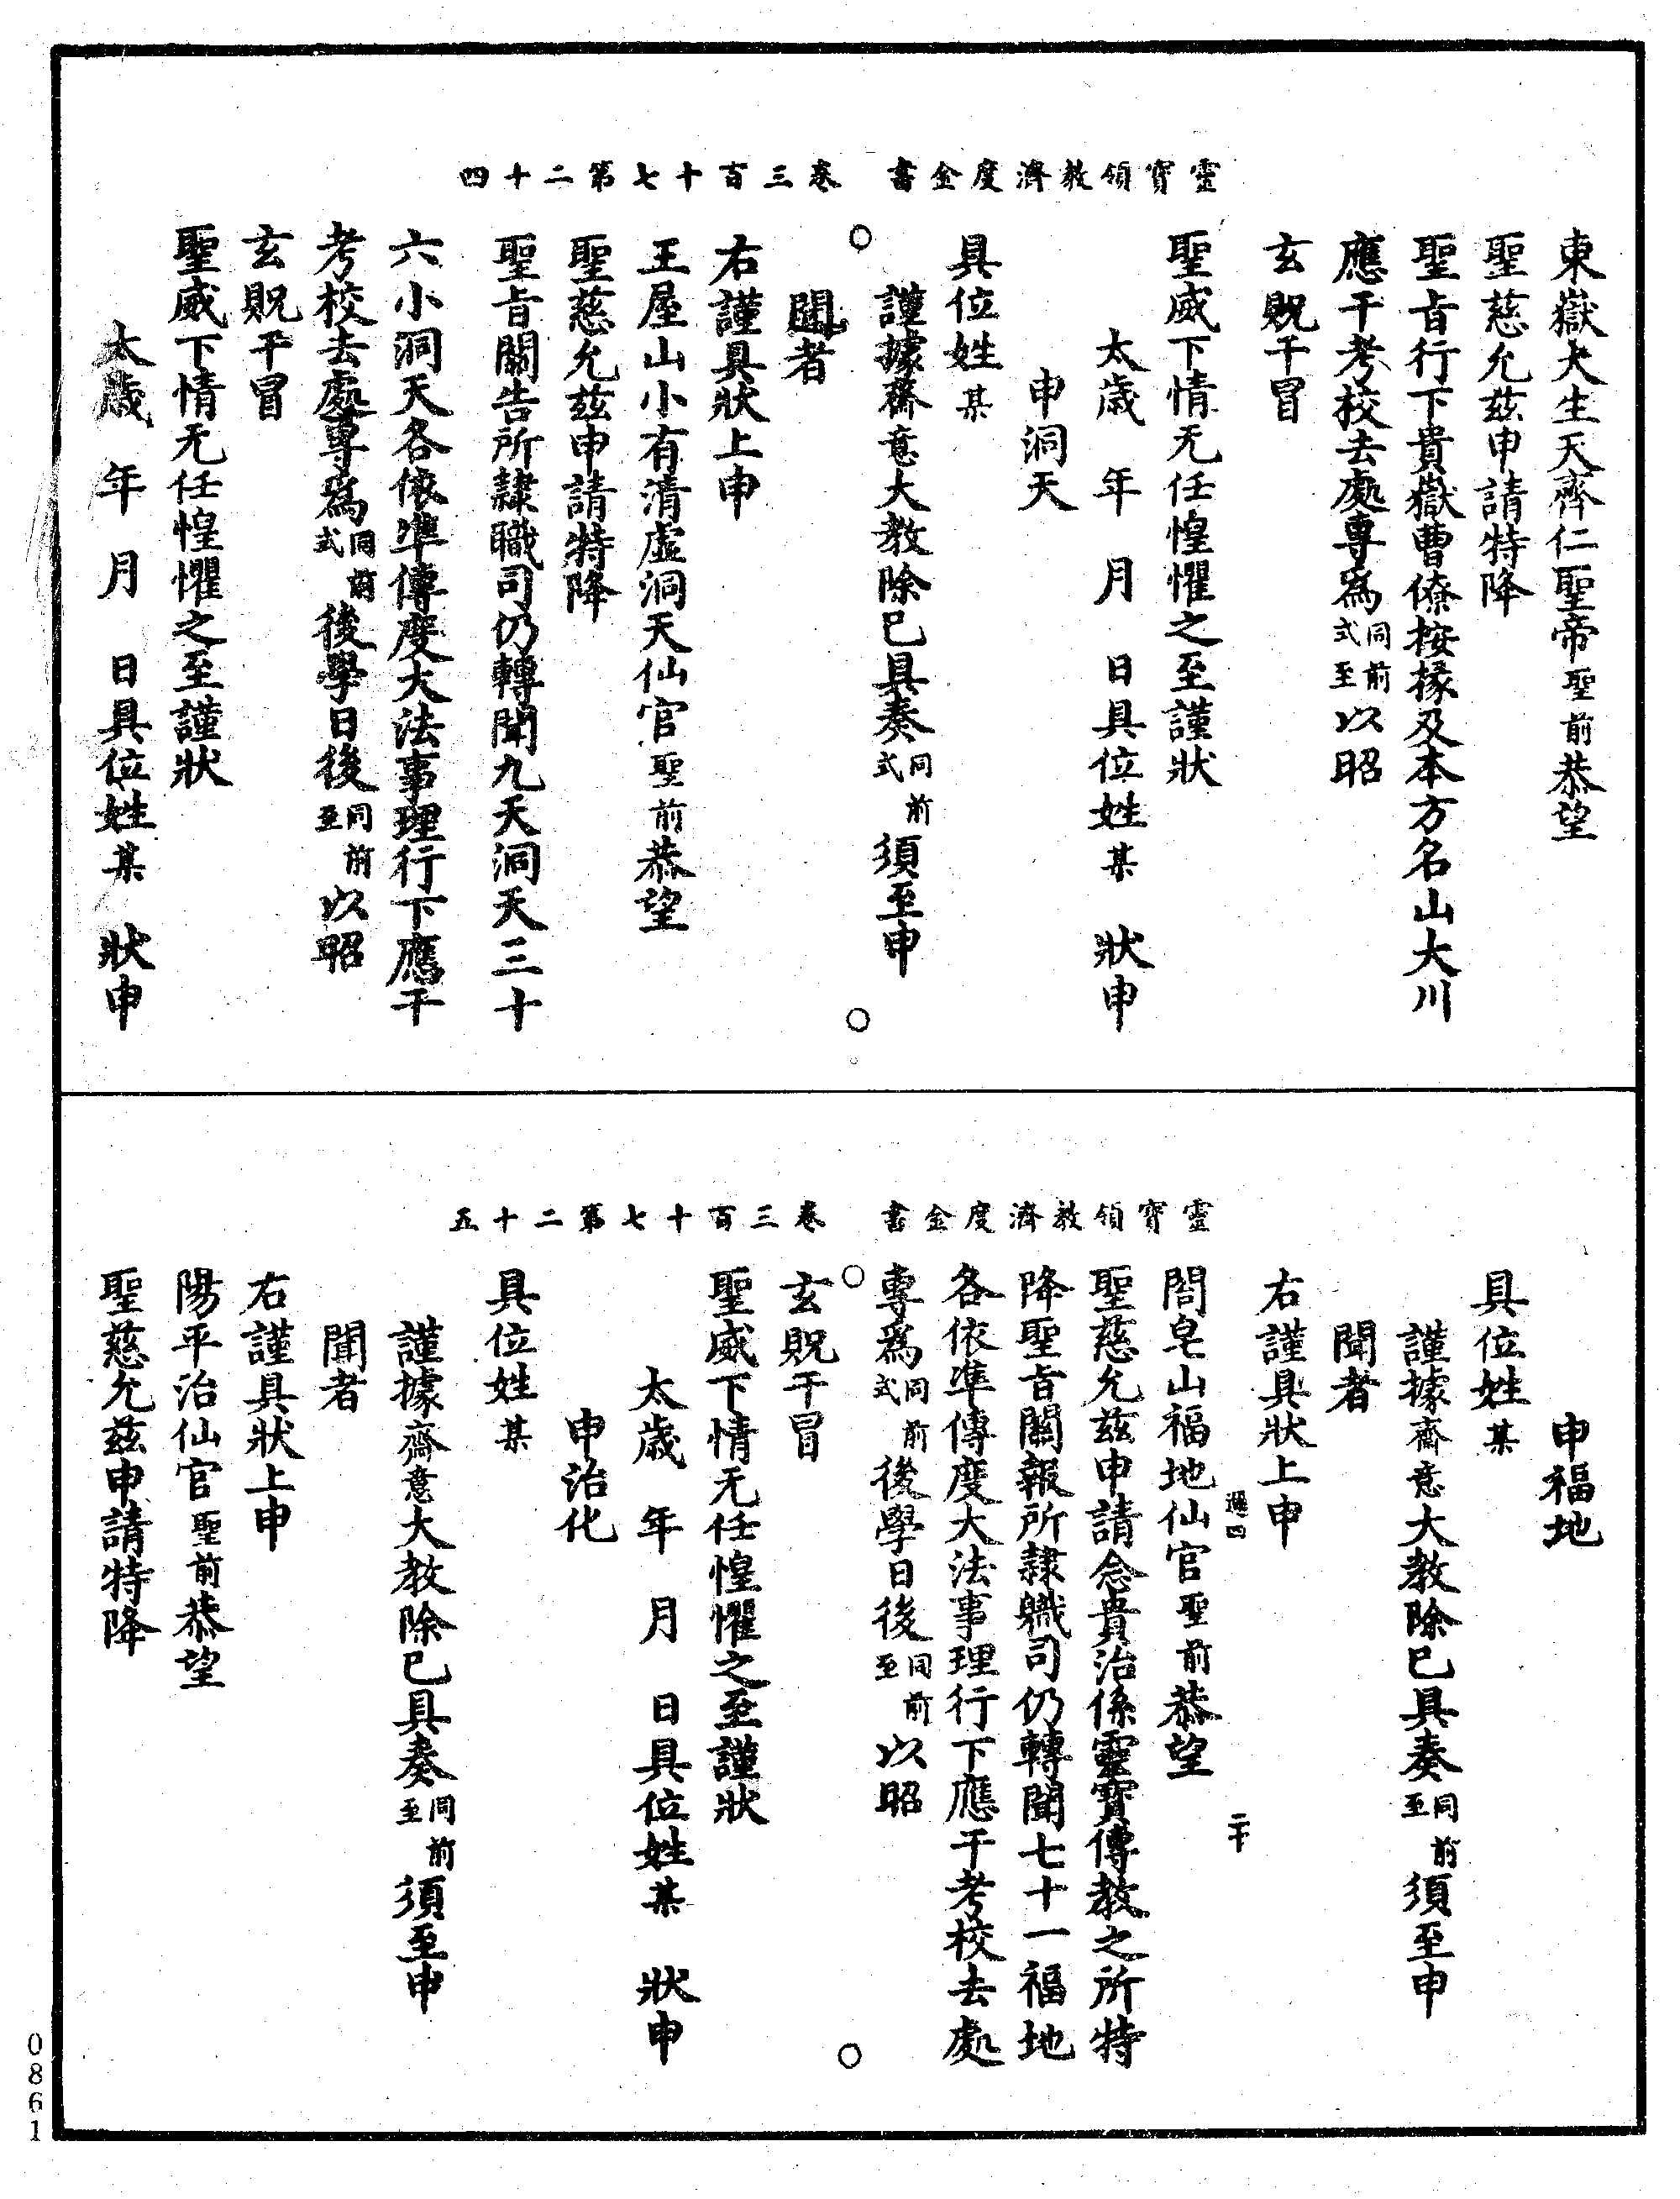 靈寶領教濟度金書　卷三百十七第二十四
東嶽大生天齊仁聖帝聖前恭望
聖慈允茲申請特降
聖旨行下貴嶽曹僚桉掾及本方名山大川
應干考校去處專爲同前式至以昭
玄貺干冒
聖威下情无任惶懼之至謹狀
太歲　年　月　日具位姓某　狀申
申洞天
具位姓某
謹據齋意大教除已具奏同前式須至申
聞者
右謹具狀上申
王屋山小有清虛洞天仙官聖前恭望
聖慈允茲申請特降
聖旨關告所隸職司仍轉聞九天洞天三十
六小洞天各依準傳度大法事理行下應干
考校去處專爲同前式後學日後同前至以昭
玄貺干冒
聖威下情无任惶懼之至謹狀
太歲　年　月　日具位姓某　狀申
靈寶領教濟度金書　卷三百十七第二十五
申福地
具位姓某
謹據齋意大教除已具奏同前至須至申
聞者
右謹具狀上申
閤皂山福地仙官聖前恭望
聖慈允茲申請念貴治係靈寶傳教之所特
降聖旨關報所隸職司仍轉聞七十一福地
各依準傳度大法事理行下應干考校去處
專爲同前式後學日後同前至以昭
玄貺干冒
聖威下情无任惶懼之至謹狀
太歲　年　月　日具位姓某　狀申
申治化
具位姓某
謹據齋意大教除已具奏同前至須至申
聞者
右謹具狀上申
陽平治仙官聖前恭望
聖慈允茲申請特降
0861